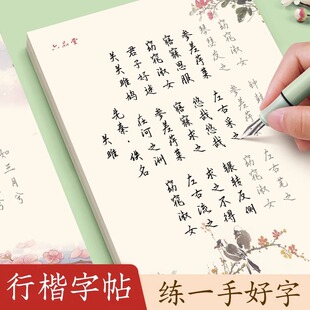 六品堂
关关雎鸠
君子好逑
窈窕淑女
寤寐思服
参差荇菜
窈窕淑女
琴瑟友之
关雎
先秦·佚名
在河之洲
参差荇菜
寤寐求之
悠哉悠哉
左右采之
窈窕淑女
左右流之
求之不得
辗转反侧
窈窕淑女
左右芼之
钟鼓
知
三月
行楷字帖
练一手好字